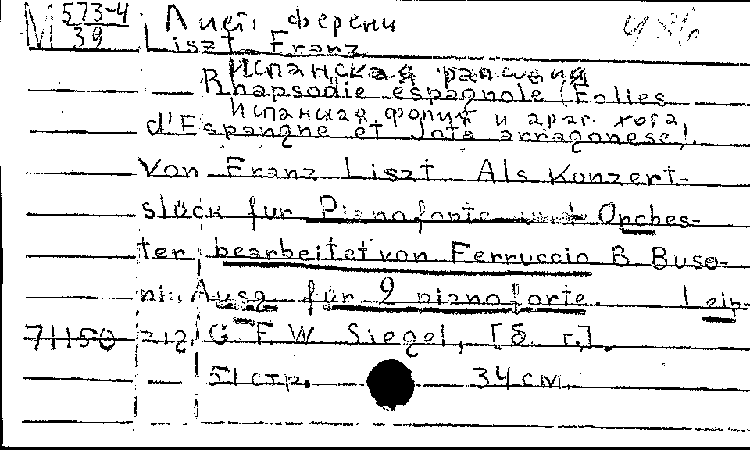 М 573-4 Лист Ференц
39 Liszt Franz
Испанская рапсодия
Rhapsodie espagnole (Folles
Испанская фолия и араг. хота
d'Espangne et Jota arragonese).
Von Franz Liszt Als Konzert-
stück für Pianoforte und Orches-
ter bearbeitet von Ferruccio B. Buso-
ni. Ausg für 2 pianoforte. Leip-
71150 zig, G. F. W. Siegel, [б. г.].
51 стр. 34 см.